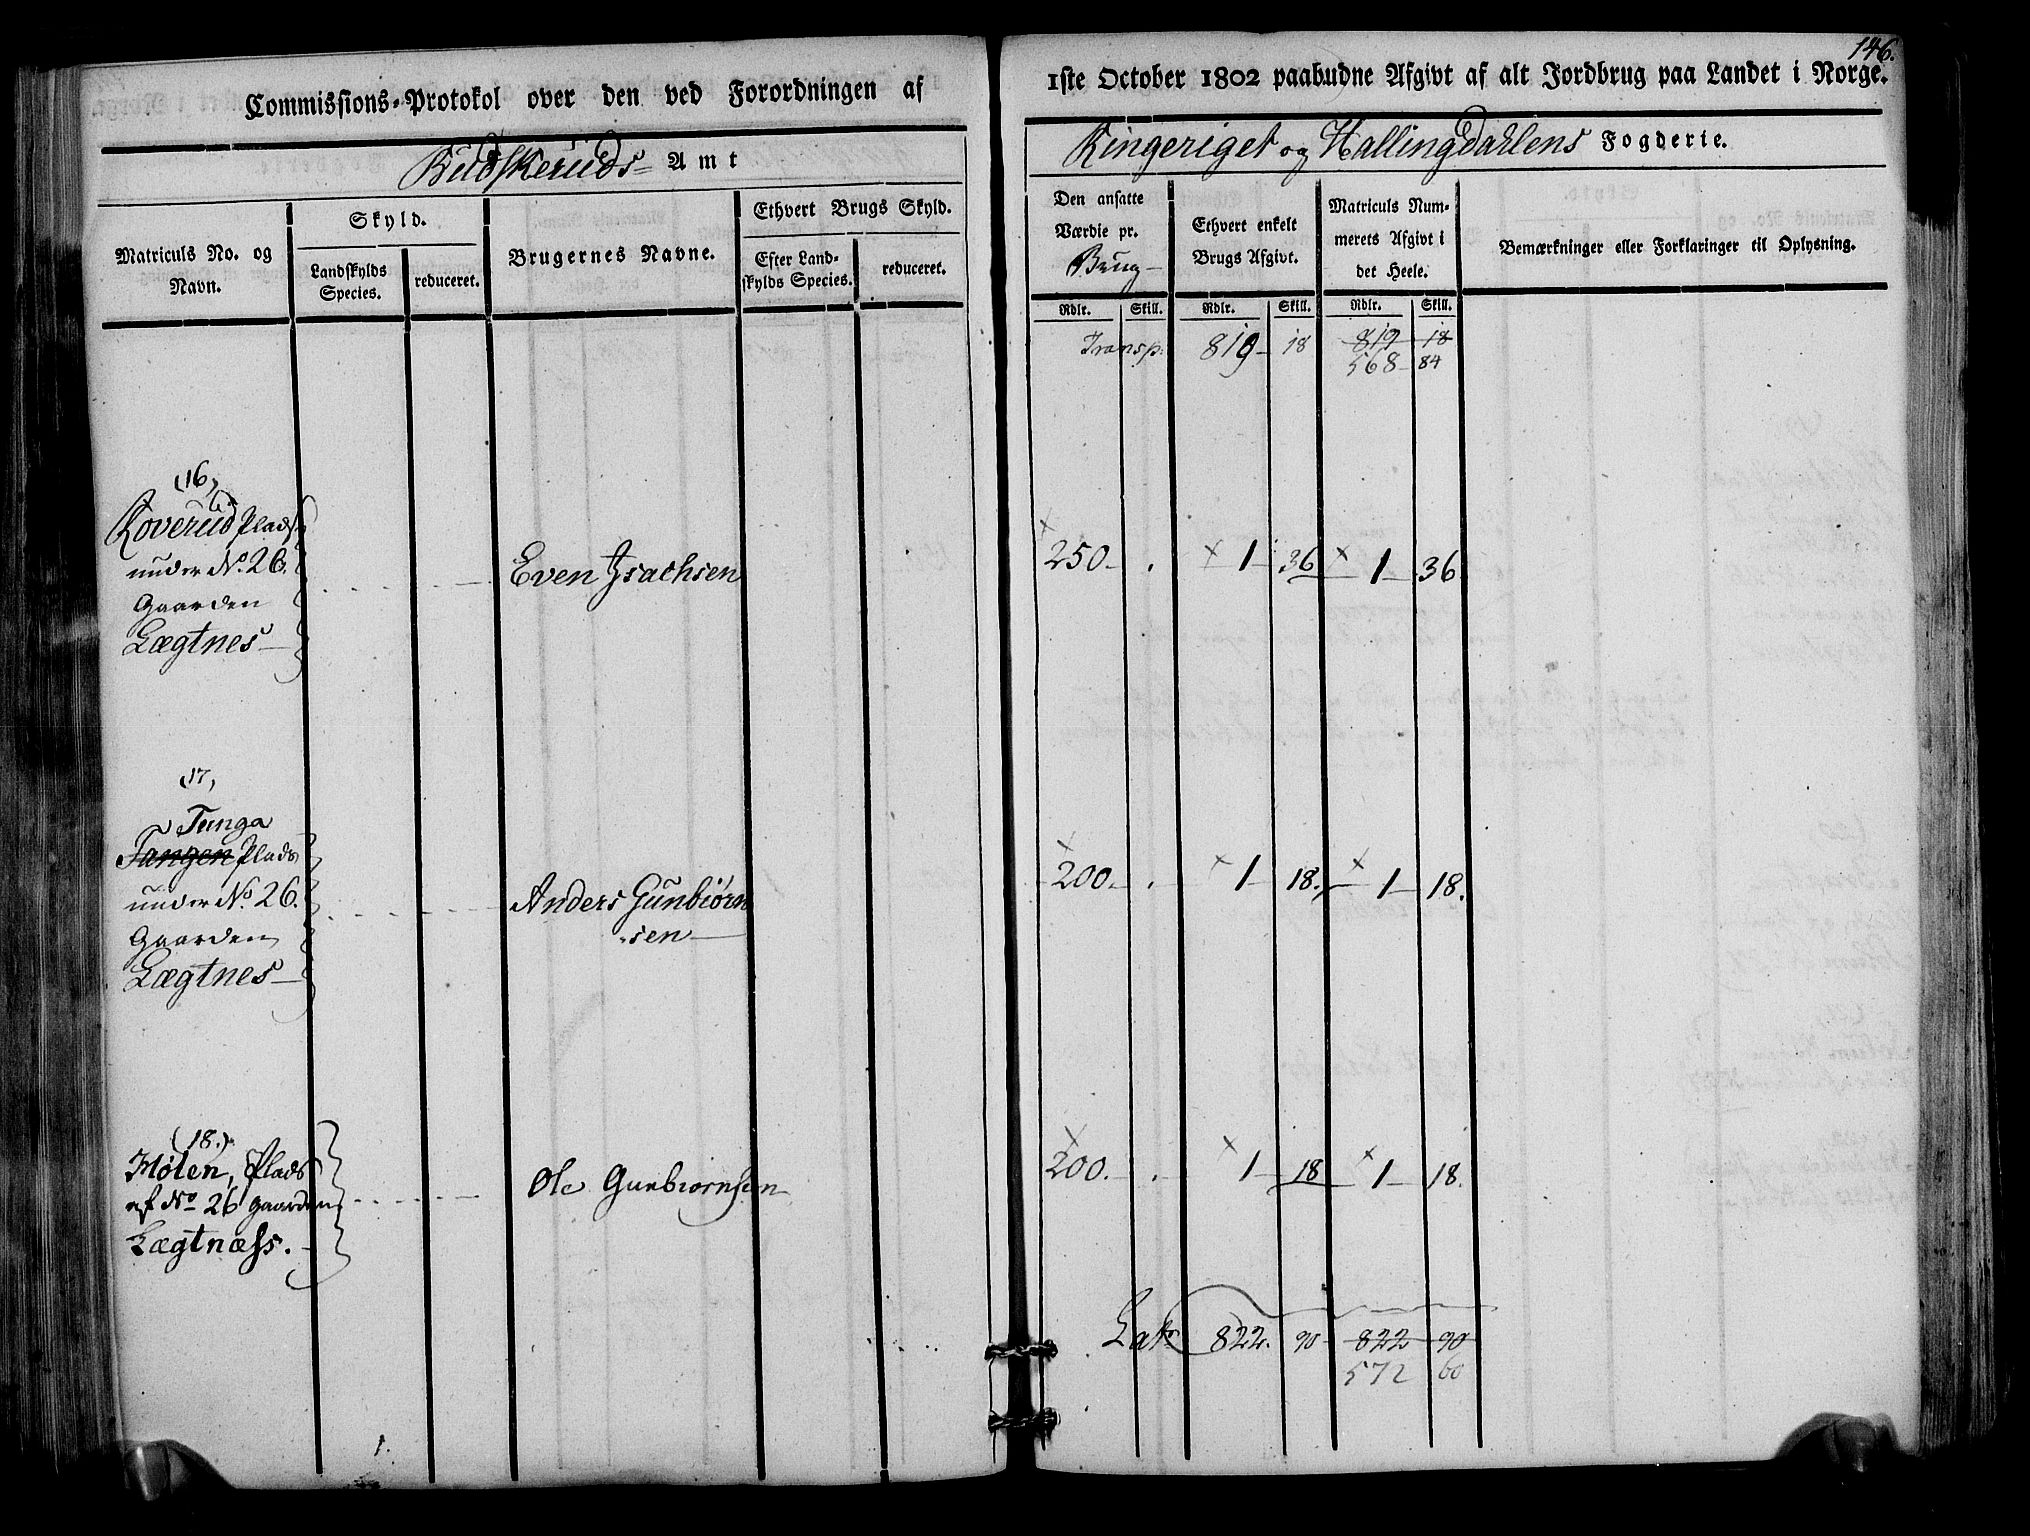 Commissions-Protokol over den ved Forordningen af
Budskeruds Amt
Matriculs No. og Navn.
Skyld.
Landskylds Species.
reduceret.
Brugernes Navne.
Ethvert Brugs Skyld.
Efter Landskylds Species.
reduceret.
(16,
Roverud Plads
under No. 26.
Gaarden
Lægtnes
Even Isachsen
(17,
Tunga
Tangen Plads
under No. 26.
Gaarden
Lægtnes
Anders Gunbiørn
sen
(18.)
Mølen, Plads
af No 26 gaarden
Lægtnæss.
Ole Gunbiørnsen
1.
146.
1ste October 1802 paabudne Afgivt af alt Jordbrug paa Landet i Norge.
Ringeriget og Hallingdahlens Fogderie.
Den ansatte Værdie pr. Brug
Ethvert enkelt Brugs Afgivt.
Matriculs Nummerets Afgivt i det Heele.
Bemærkninger eller Forklaringer til Oplysning.
Rdlr. Skill. Rdlr. Skill. Rdlr. Skill.
Transp: 819 18 819 18
568 84
250. . 1 36 1 36
200. . 1 18. 1 18.
200. . 1 18 1 18.
Lats 822. 90 822 90
572 60